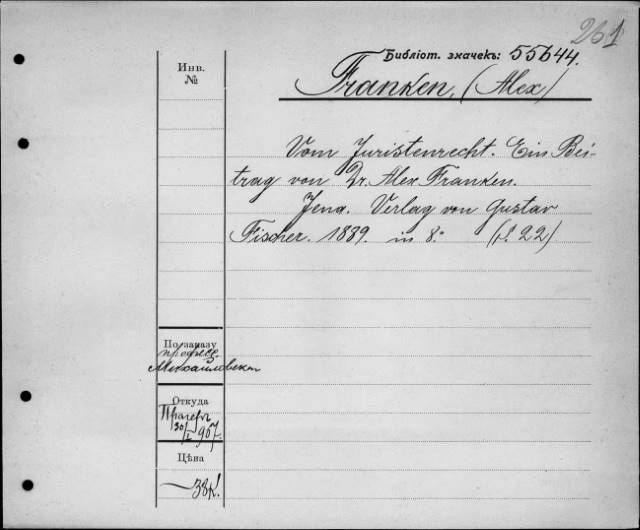 261
Библіот. значекъ: 55644.
Franken, (Alex)
Инв.
№
Vom Juristenrecht. Ein Bei-
trag von Dr. Alex Franken.
Jena. Verlag von Gustav
Fischer. 1889. in 8:° (S. 22)
По заказу
Откуда
Прагеръ
30/I 907.
Цѣна
38к.